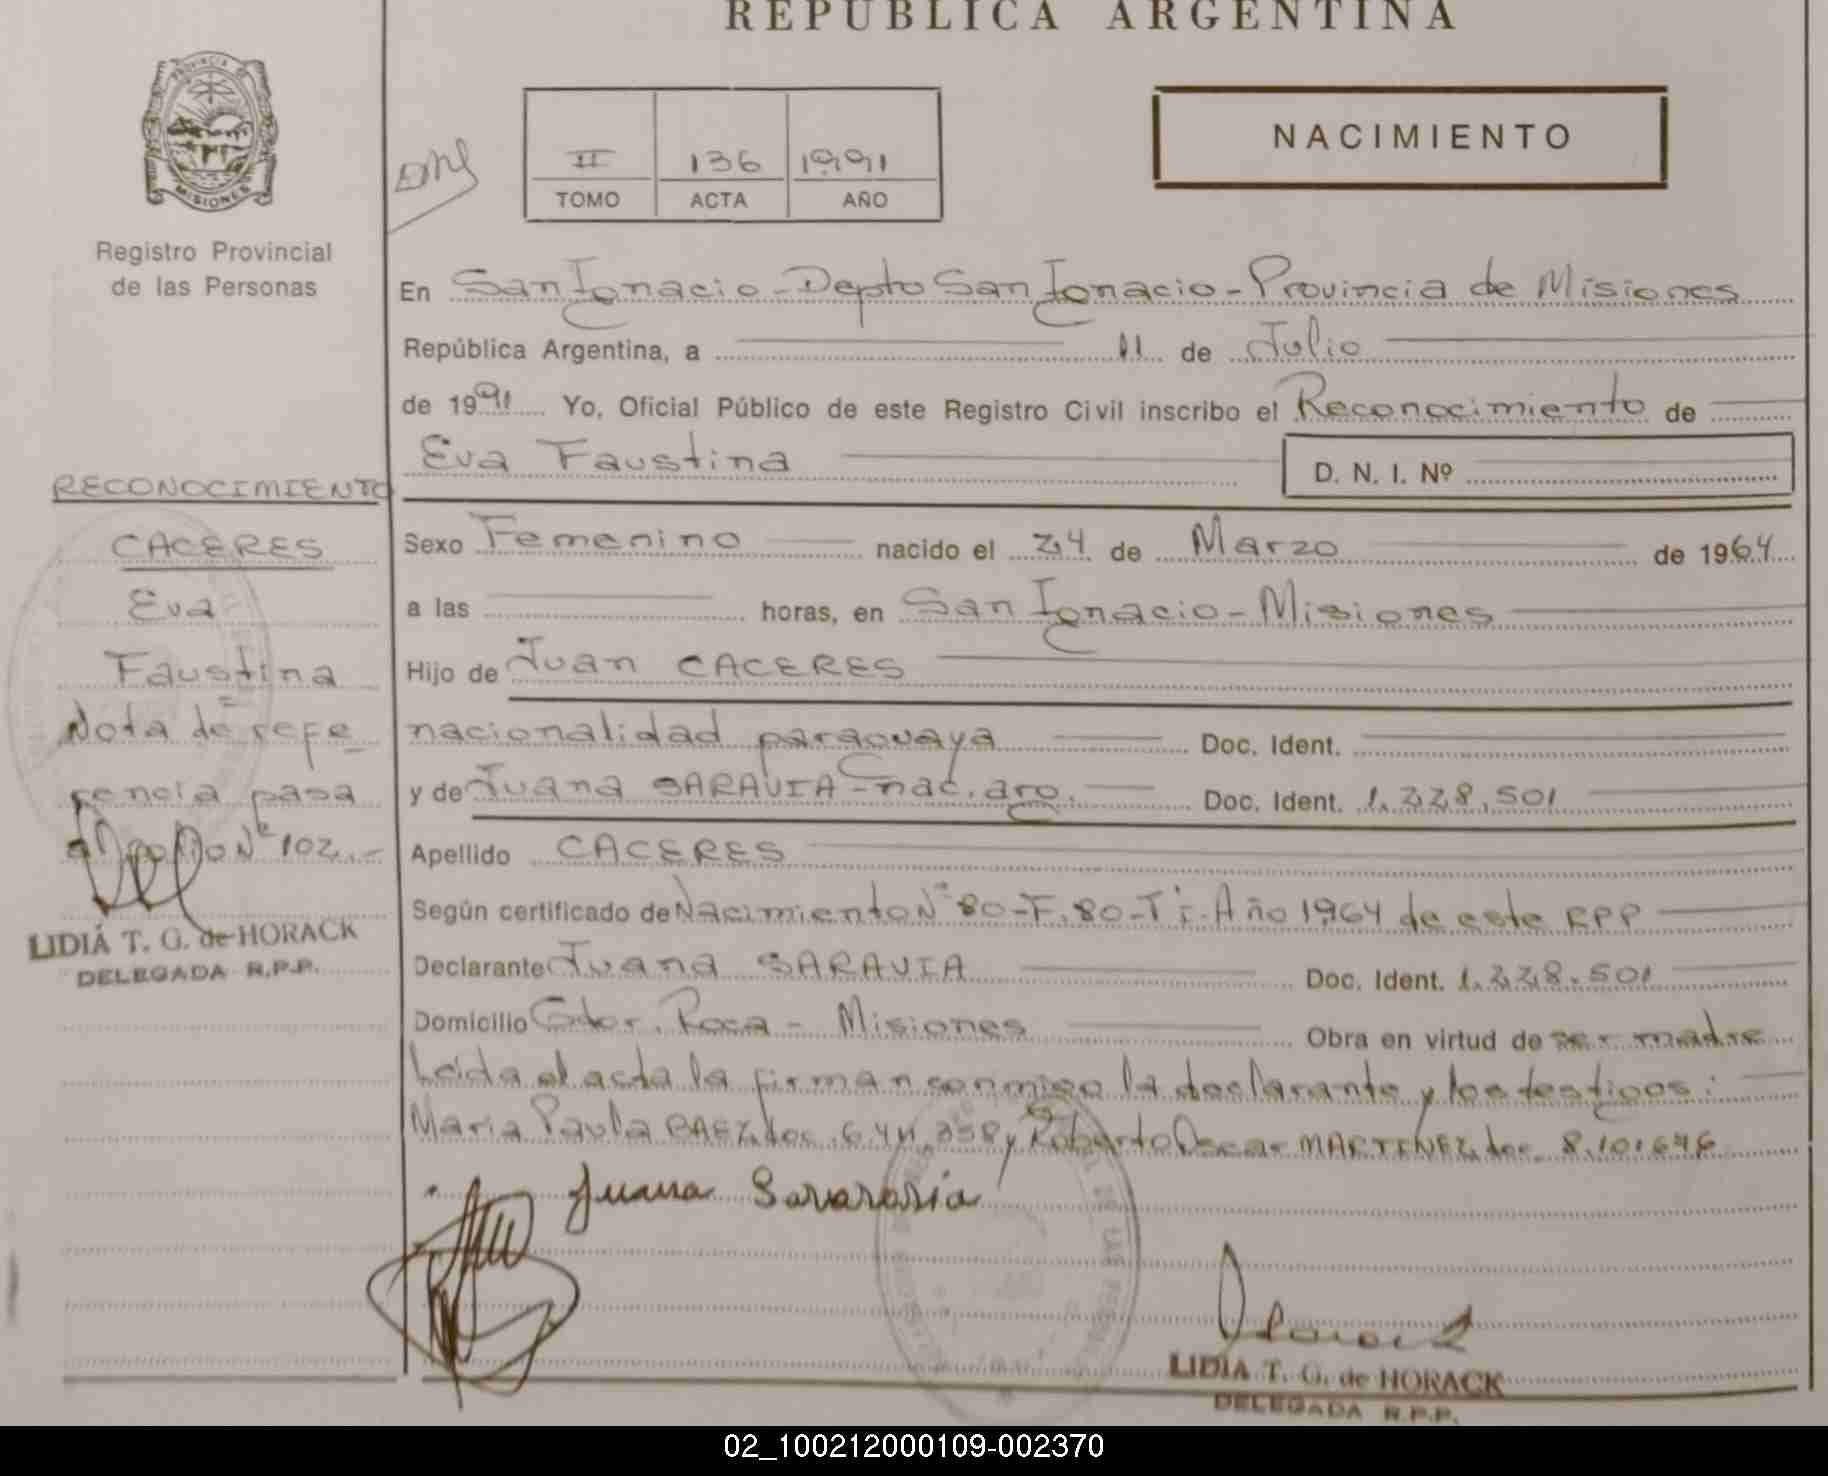 REPUBLICA ARGENTINA
PROVINCIA DE
MISIONES
Registro Provincial
de las Personas
II 136 1991
TOMO ACTA AÑO
NACIMIENTO
En San Ignacio - Depto San Ignacio - Provincia de Misiones
República Argentina, a 11 de Julio
de 1991 Yo, Oficial Público de este Registro Civil inscribo el Reconocimiento de
Eva Faustina D. N. I. Nº
Sexo Femenino nacido el 24 de Marzo de 1964
a las horas, en San Ignacio - Misiones
Hijo de Juan CACERES
nacionalidad paraguaya Doc. Ident.
y de Juana SARAVIA - nac. arg. Doc. Ident. 1.228.501
Apellido CACERES
Según certificado de Nacimiento Nº 80 - F. 80 - T i. Año 1964 de este RPP
Declarante Juana SARAVIA Doc. Ident. 1.228.501
Domicilio Gdor. Roca - Misiones Obra en virtud de ser madre
Leída el acta la firman conmigo la declarante y los testigos:
Maria Paula BAEZ, doc. y Roberto Oscar MARTINEZ, doc. 8.101.646
Juana
LIDIA T. G. de HORACK
DELEGADA R.P.P.
RECONOCIMIENTO
CACERES
Eva
Faustina
Nota de refe
rencia pasa
al folio Nº 102.-
LIDIA T. G. de HORACK
DELEGADA R.P.P.
02_100212000109-002370